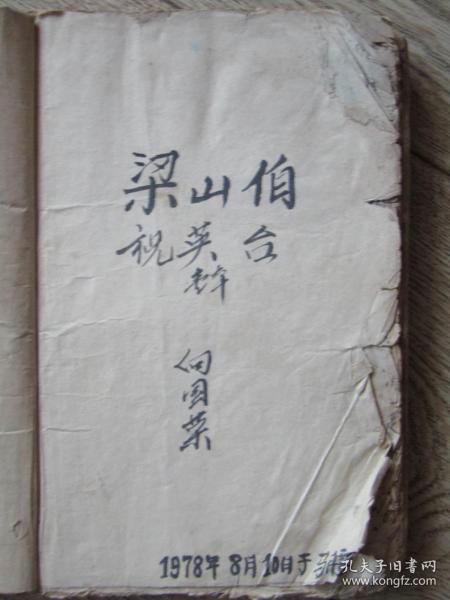 梁山伯
祝英台
向国菜
1978年8月10日于
孔夫子旧书网
www.kongfz.com